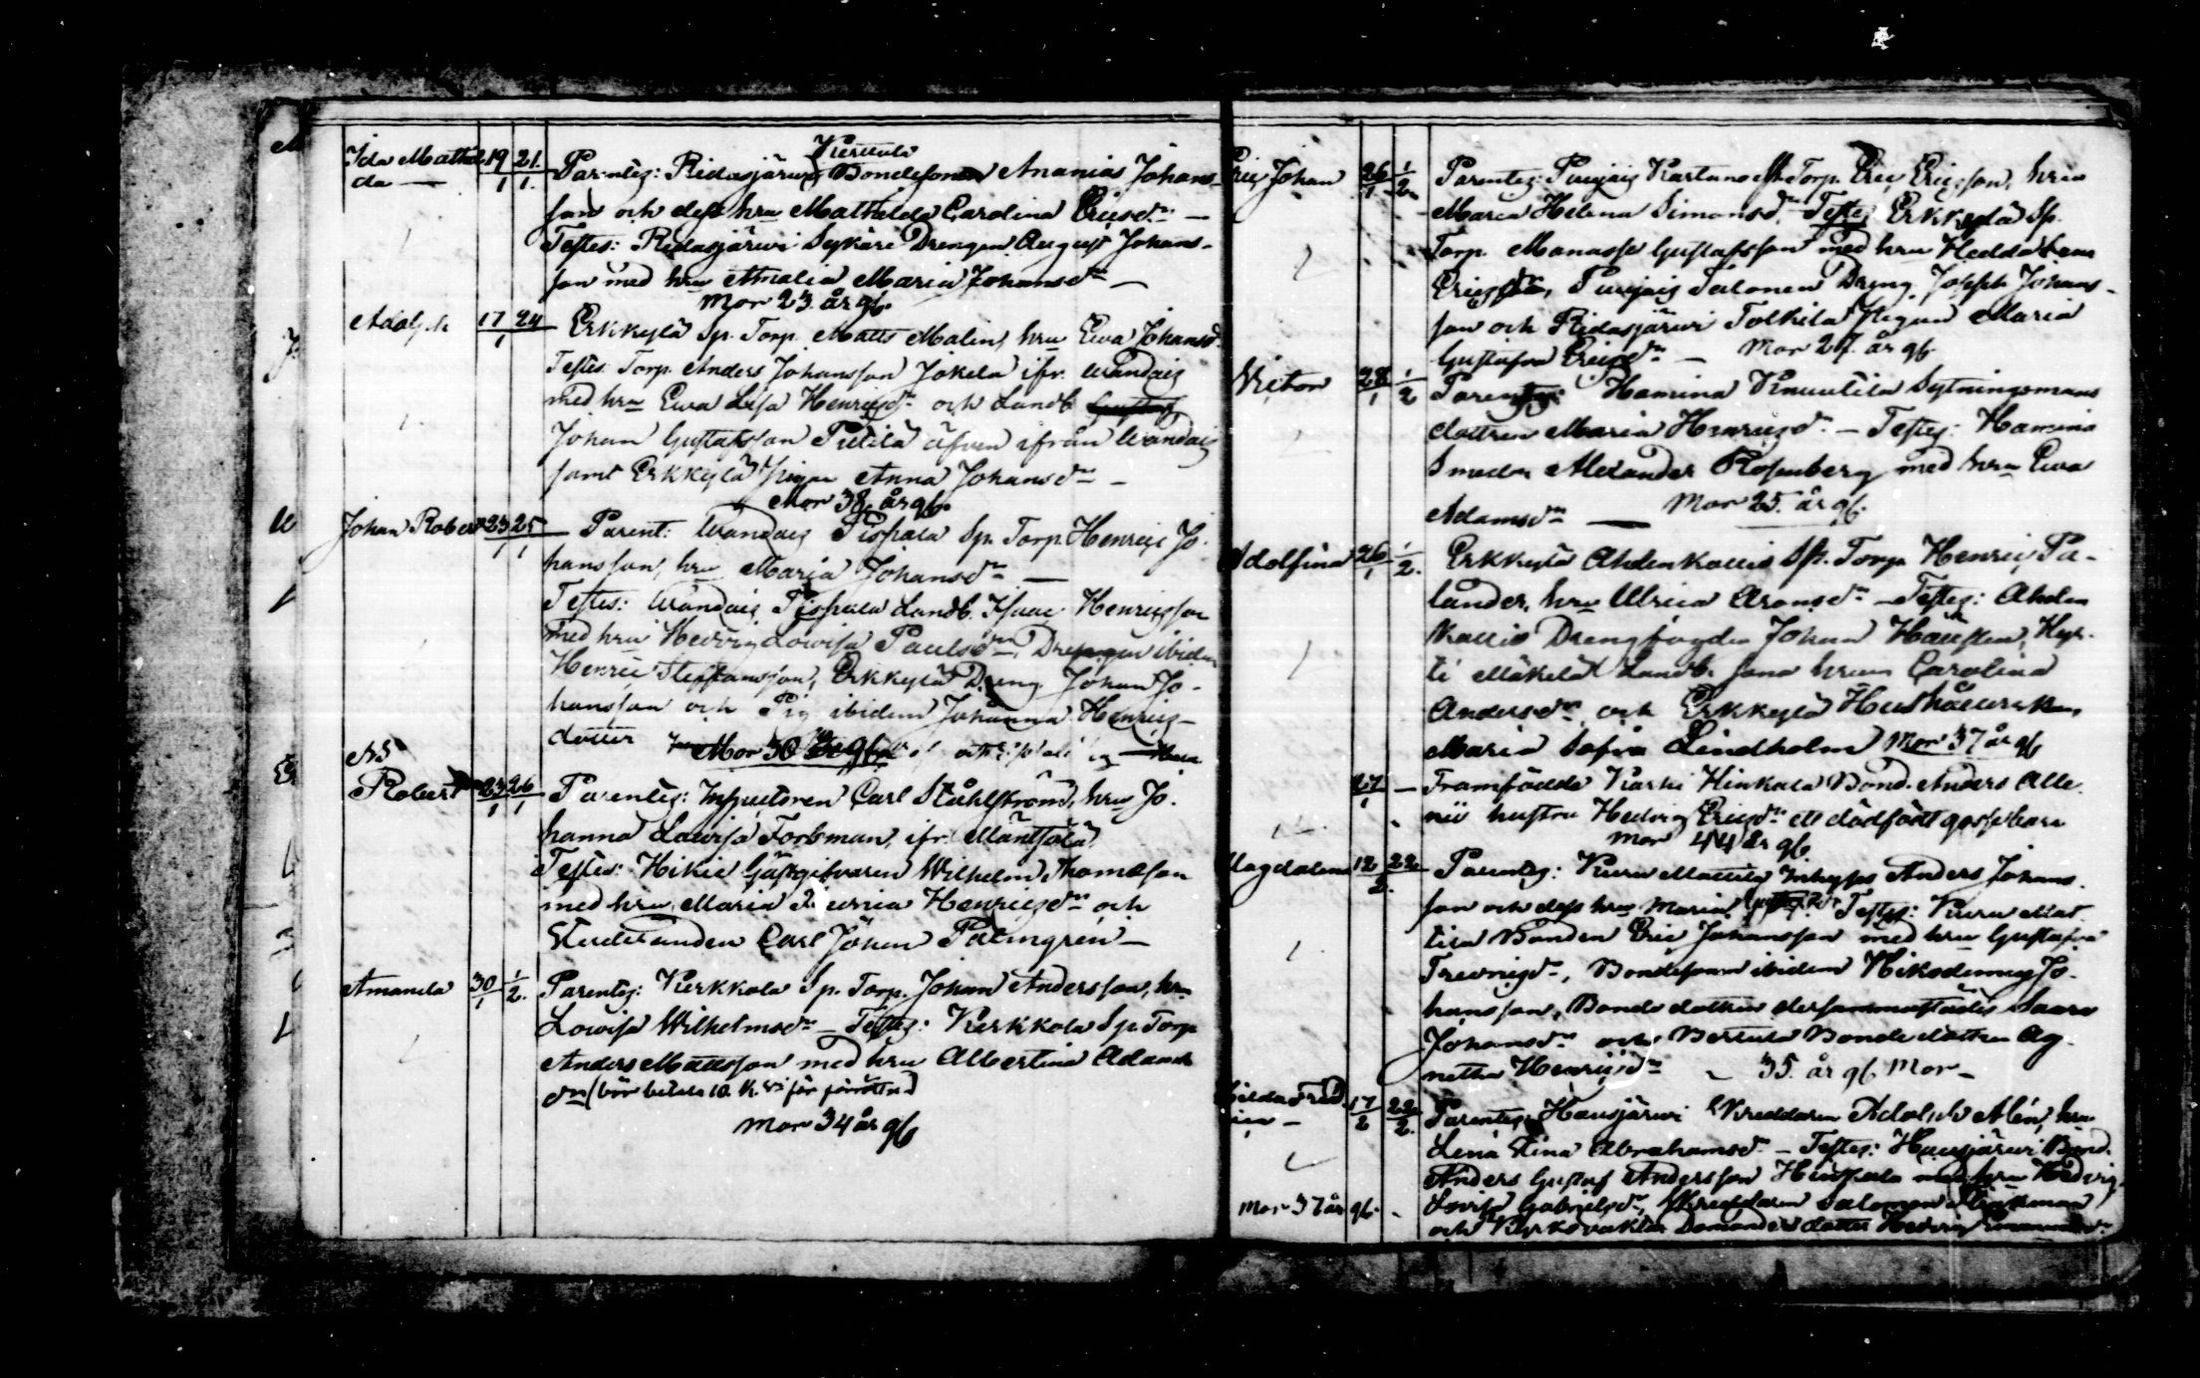 Kerttula
Ida Mathil 19/1 21/1. Parenteg: Ridasjärwi Bondesonen Ananias Johans-
da — son och dess hru Mathilda Carolina Ericsdr —
Testes: Ridasjärwi Sykäri Drengen August Johans-
son med hru Amalia Maria Johansdr —
Mor 23 år gl.
Adolph 17/1 24 Erkkylä Sp. Torp. Matts Malin, hru Ewa Johansd.
Testes Torp. Anders Johansson Jokela ifr. Wandais
med hru Ewa Lisa Henricsdr och Landb.
Johan Gustafsson Pietilä äfven ifrån Wandais
samt Erkkylä pigan Anna Johansdr —
Mor 38 år gl.
Johan Robert 23/1 25/1 — Parent: Wandais Pispala Sp. Torp. Henric Jo-
hansson, hru Maria Johansdr —
Testes: Wandais Pispala Landb. Isaac Henricsson
med hru Hedvig Lowisa Paulsdr, Drengen ibidem
Henric Steffansson, Erkkylä Dreng Johan Jo-
hansson och Pig. ibidem Johanna Henrics-
dotter Mor 30 år gl.
No
Robert 23/1 26/1 Parenteg: Inspectoren Carl Ståhlström, hru Jo-
hanna Lowisa Forsman, ifr. Mäntsälä
Testes: Hikiä Gästgifvaren Wilhelm Thomasson
med hru Maria Henricsdr och
Studeranden Carl Johan Palmgrén —
Amanda 30/1 1/2. Parenteg: Kerkkola Sp. Torp. Johan Andersson, hru
Lowisa Wilhelmsdr — Testes: Kerkkola Sp. Torp.
Anders Mattsson med hru Albertina Adams
dr (bör betala 10 K. för
Mor 34 år gl
Eric Johan 26/1 1/2 Parenteg: Puujais Kartano Sp. Torp. Eric Ericsson, hru
Maria Helena Simonsd. — Testes Erkkylä Sp.
Torp. Manasse Gustafsson med hru Hedda
Ericsdr, Puujais Salonen Dreng Joseph Johans-
son och Ridasjärwi Tolkila Pigan Maria
Gustafva Ericsdr — Mor 27. år gl.
Victor 28/1 1/2 Parenteg: Hamina Knuutila Sytningsmans
dottren Maria Henricsdr. — Testes: Hamina
Smeden Alexander Rosenberg med hru Ewa
Adamsdr — Mor 25. år gl.
Adolfina 26/1 1/2. Erkkylä Ahdenkallio Sp. Torp. Henric Pa-
lander, hru Ulrica Aronsdr — Testes: Ahden
kallio Drengfogden Johan Hollsten, Hyr-
ti Mäkelä Landb. sons hrun Carolina
Andersdr och Erkkylä Hushållerskan
Maria Sofia Lindholm Mor 37 år gl
27/1 — Framfödde Karhi Hinkala Bond. Anders Alle-
nii hustru Hedvig Ericsdr ett dödfödt gossebarn
Mor 44 år gl.
Magdalena 12/2 22 Parenteg: Kuru Mattila Inhyses Anders Johans-
son och dess hru Maria Testes: Kuru Mat-
tila Bonden Eric Johansson med hru Gustafva
Bondesonen ibidem Nikodemus Jo-
hansson, Bonde dottren dersammastädes Saara
Johansdr och Bertula Bonde dottren Ag-
netha Henricsdr — 35. år gl. Mor —
Hilda Fred- 17/2 22/2. Parenteg: Hausjärwi Skreddaren Adolph Alén, hru
ica — Lena Stina Abrahamsdr — Testes: Hausjärwi Bond.
Anders Gustaf Andersson med hru Hedvig
Mor 37 år gl. Lovisa Gabrielsdr, Skreddaren Salomon
och Kyrkovaktar dotter Hedvig